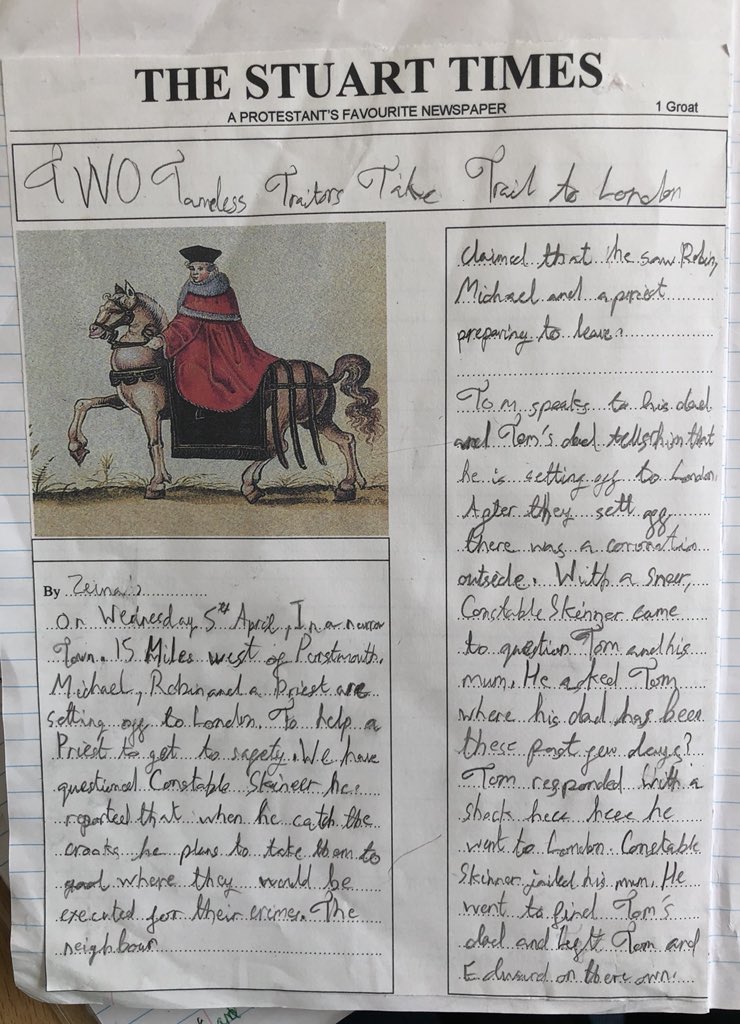 THE STUART TIMES
A PROTESTANT'S FAVOURITE NEWSPAPER
1 Groat
TWO Tameless Traitors Take Trail to London
By Zeina
On Wednesday 5th April, In a narrow
Town. 15 Miles west of Porstmouth.
Michael, Robin and a Priest are
setting off to London. To help a
Priest to get to safety. We have
questioned Constable Skineer he
reported that when he catch the
crooks he plans to take them to
where they would be
executed for their crimes. The
neighbour
claimed that he saw Robin,
Michael and a priest
preparing to leave.
Tom, speaks to his dad
and Tom's dad tells him that
he is setting off to London.
After they sett off
there was a coronation
outside. With a sneer,
Constable Skinner came
to question Tom and his
mum. He asked Tom
where his dad has been
these past few days?
Tom responded with a
shock heee heee he
went to London. Constable
Skinner jailed his mum. He
went to find Tom's
dad and left Tom and
Edward on there own.